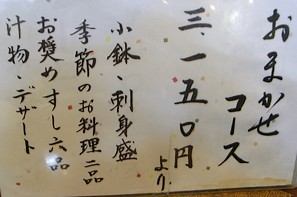 おまかせ
コース
三、一五〇円
より
小鉢、刺身盛
季節のお料理二品
お奨めすし六品
汁物、デザート